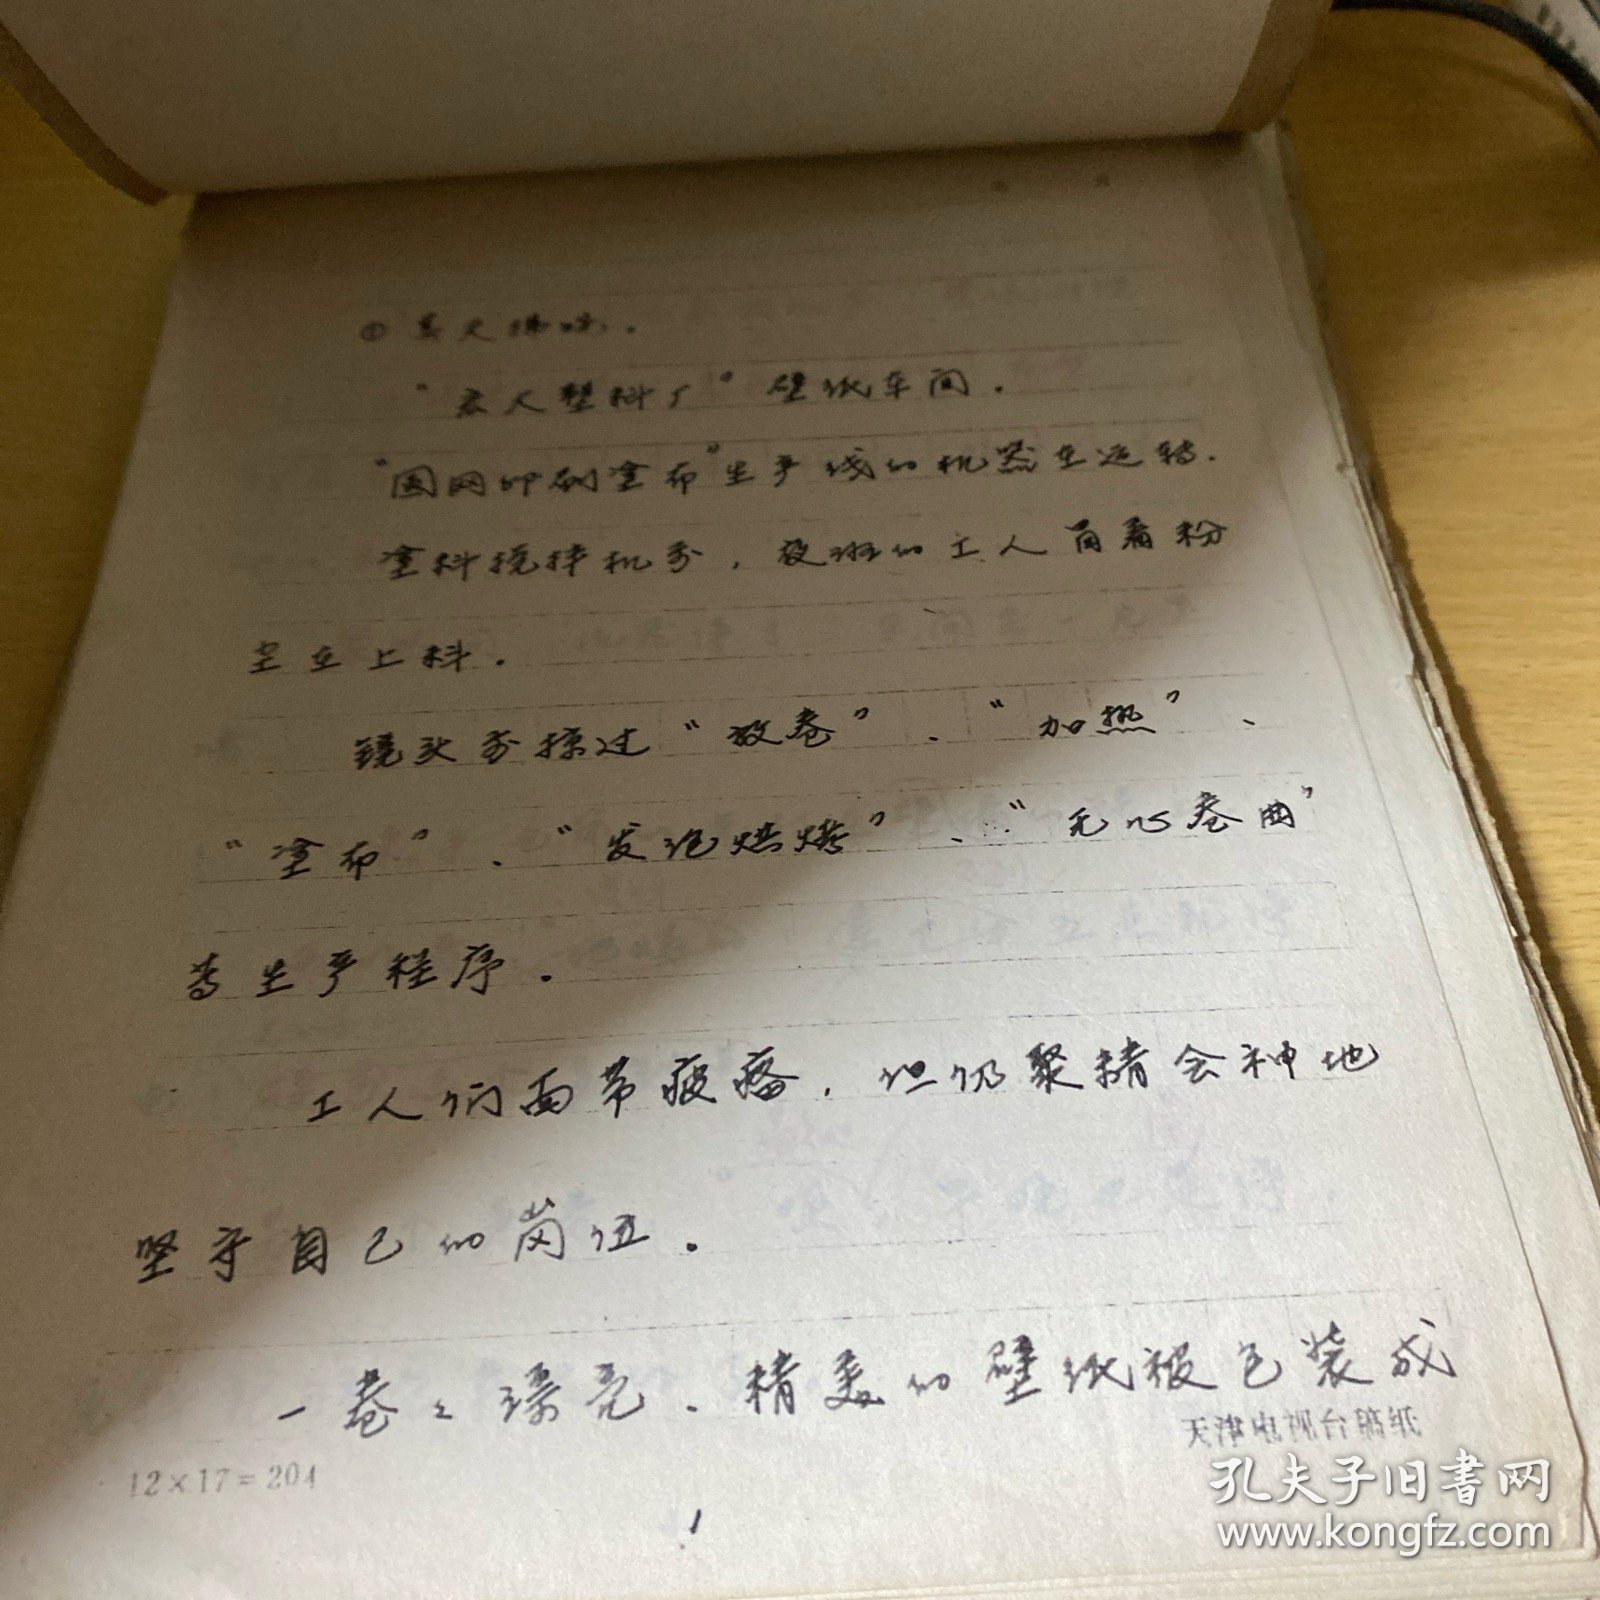 ① 某天拂晓.
"宏人塑料厂"壁纸车间.
"圆网印刷塗布"生产线的机器在运转.
塗料搅拌机旁, 夜班的工人冒着粉
尘在上料.
镜头旁掠过"放卷"、"加热"、
"塗布"、"发泡烘烤"、"无心卷曲"
等生产程序.
工人们面带疲瘘, 但仍聚精会神地
坚守自己的岗位.
一卷々漂亮、精美的壁纸被包装成
天津电视台稿纸
12×17=204
1
孔夫子旧书网
www.kongfz.com